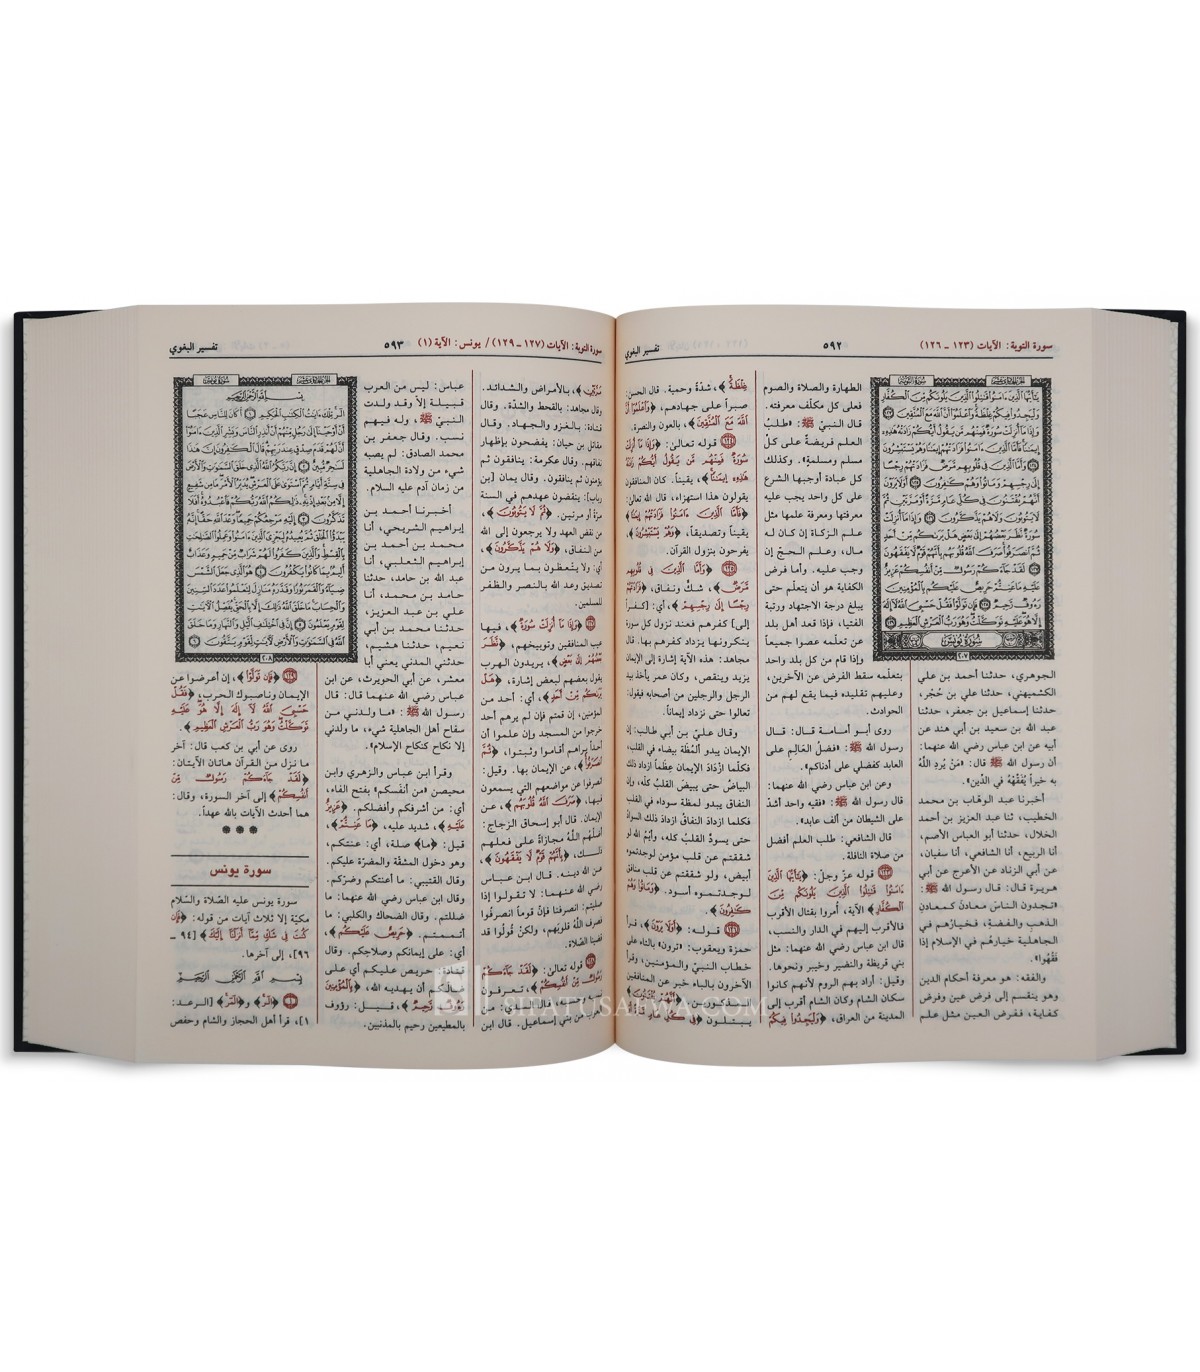 سورة التوبة: الآيات (١٢٣ - ١٢٦)
٥٩٢
تفسير البغوي
الجوهري، حدثنا أحمد بن علي
الكشميهني، حدثنا علي بن حُجْر،
حدثنا إسماعيل بن جعفر، حدثنا
عبد الله بن سعيد بن أبي هند عن
أبيه عن ابن عباس رضي الله عنهما
أن رسول الله ﷺ قال: «مَنْ يُردِ اللَّهُ
به خيراً يُفَقِّهْهُ في الدِّين».
أخبرنا عبد الوهاب بن محمد
الخطيب، ثنا عبد العزيز بن أحمد
الخلال، حدثنا أبو العباس الأصم،
أنا الربيع، أنا الشافعي، أنا سفيان،
عن أبي الزناد عن الأعرج عن أبي
هريرة قال: قال رسول الله ﷺ:
«تجدون الناسَ معادنَ كمعادنِ
الذهبِ والفضة، فخيارُهم في
الجاهلية خيارُهم في الإسلام إذا
فقُهُوا».
والفقه: هو معرفة أحكام الدين
وهو ينقسم إلى فرض عين وفرض
كفاية، ففرض العين مثل علم
الطهارة والصلاة والصوم
فعلى كل مكلّف معرفته.
قال النبيّ ﷺ: «طلبُ
العلم فريضةٌ على كلّ
مسلم ومسلمةٍ». وكذلك
كل عبادة أوجبها الشرع
على كل واحد يجب عليه
معرفتها ومعرفة علمها مثل
علم الزكاة إن كان له
مال، وعلم الحجّ إن
وجب عليه. وأما فرض
الكفاية هو أن يتعلّم حتى
يبلغ درجة الاجتهاد ورتبة
الفتيا، فإذا قعد أهل بلد
عن تعلّمه عصوا جميعاً
وإذا قام من كل بلد واحد
بتعلّمه سقط الفرض عن الآخرين،
وعليهم تقليده فيما يقع لهم من
الحوادث.
روى أبو أمامة قال: قال
رسول الله ﷺ: «فضلُ العَالِمِ على
العابد كفضلي على أدناكم».
وعن ابن عباس رضي الله عنهما:
قال رسول الله ﷺ: «فقيه واحد أشدّ
على الشيطان من ألف عابد».
قال الشافعي: طلب العلم أفضل
من صلاة النافلة.
﴿١٢٣﴾ قوله عزّ وجلّ: ﴿يَٰٓأَيُّهَا ٱلَّذِينَ
ءَامَنُوا۟ قَٰتِلُوا۟ ٱلَّذِينَ يَلُونَكُم مِّنَ
ٱلْكُفَّارِ﴾ الآية، أُمروا بقتال الأقرب
فالأقرب إليهم في الدار والنسب،
قال ابن عباس رضي الله عنهما: مثل
بني قريظة والنضير وخيبر ونحوها.
وقيل: أراد بهم الروم لأنهم كانوا
سكان الشام وكان الشام أقرب إلى
المدينة من العراق، ﴿وَلْيَجِدُوا۟ فِيكُمْ
غِلْظَةً﴾، شدّة وحمية. قال الحسن:
صبراً على جهادهم، ﴿وَٱعْلَمُوٓا۟ أَنَّ
ٱللَّهَ مَعَ ٱلْمُتَّقِينَ﴾، بالعون والنصرة.
﴿١٢٤﴾ قوله تعالىٰ: ﴿وَإِذَا مَآ أُنزِلَتْ
سُورَةٌ فَمِنْهُم مَّن يَقُولُ أَيُّكُمْ زَادَتْهُ
هَٰذِهِۦٓ إِيمَٰنًا﴾، يقيناً. كان المنافقون
يقولون هذا استهزاء، قال الله تعالىٰ:
﴿فَأَمَّا ٱلَّذِينَ ءَامَنُوا۟ فَزَادَتْهُمْ إِيمَٰنًا﴾
يقيناً وتصديقاً، ﴿وَهُمْ يَسْتَبْشِرُونَ﴾،
يفرحون بنزول القرآن.
﴿١٢٥﴾ ﴿وَأَمَّا ٱلَّذِينَ فِى قُلُوبِهِم
مَّرَضٌ﴾، شك ونفاق، ﴿فَزَادَتْهُمْ
رِجْسًا إِلَىٰ رِجْسِهِمْ﴾، أي: [كفراً
إلى] كفرهم فعند نزول كل سورة
ينكرونها يزداد كفرهم بها. قال
مجاهد: هذه الآية إشارة إلى الإيمان
يزيد وينقص، وكان عمر يأخذ بيد
الرجل والرجلين من أصحابه فيقول:
تعالوا حتى نزداد إيماناً.
وقال عليّ بن أبي طالب: إن
الإيمان يبدو لُمْظَة بيضاء في القلب،
فكلّما ازدَادَ الإيمانُ عظماً ازداد ذلك
البياضُ حتى يبيضَ القلبُ كلّه، وإن
النفاق يبدو لمظة سوداء في القلب
فكلما ازداد النفاقُ ازدادَ ذلك السوادُ
حتى يسودّ القلبُ كلّه، وأيْمُ الله لو
شققتم عن قلب مؤمن لوجدتموه
أبيض، ولو شققتم عن قلب منافق
لوجدتموه أسود. ﴿وَمَاتُوا۟ وَهُمْ
كَٰفِرُونَ﴾.
﴿١٢٦﴾ قوله: ﴿أَوَلَا يَرَوْنَ﴾، قرأ
حمزة ويعقوب: «ترون» بالتاء على
خطاب النبيّ والمؤمنين، وقرأ
الآخرون بالياء خبر عن المنافقين
المذكورين، ﴿أَنَّهُمْ يُفْتَنُونَ﴾
يبتلون ﴿فِى كُلِّ عَامٍ مَّرَّةً أَوْ
سورة التوبة: الآيات (١٢٧ - ١٢٩) / يونس: الآية (١)
٥٩٣
تفسير البغوي
مَرَّتَيْنِ﴾، بالأمراض والشدائد.
وقال مجاهد: بالقحط والشدّة. وقال
قتادة: بالغزو والجهاد. وقال
مقاتل بن حيان: يفضحون بإظهار
نفاقهم. وقال عكرمة: ينافقون ثم
يؤمنون ثم ينافقون. وقال يمان [بن
رباب]: ينقضون عهدهم في السنة
مرّة أو مرتين. ﴿ثُمَّ لَا يَتُوبُونَ﴾،
من نقض العهد ولا يرجعون إلى الله
من النفاق، ﴿وَلَا هُمْ يَذَّكَّرُونَ﴾،
أي: ولا يتّعظون بما يرون من
تصديق وعد الله بالنصر والظفر
للمسلمين.
﴿١٢٧﴾ ﴿وَإِذَا مَآ أُنزِلَتْ سُورَةٌ﴾، فيها
عيب المنافقين وتوبيخهم، ﴿نَّظَرَ
بَعْضُهُمْ إِلَىٰ بَعْضٍ﴾، يريدون الهرب
يقول بعضهم لبعض إشارة، ﴿هَلْ
يَرَىٰكُم مِّنْ أَحَدٍ﴾، أي: أحد من
المؤمنين، إن قمتم فإن لم يرهم أحد
خرجوا من المسجد وإن علموا أن
أحداً يراهم أقاموا وثبتوا، ﴿ثُمَّ
ٱنصَرَفُوا۟﴾، عن الإيمان بها. وقيل:
انصرفوا عن مواضعهم التي يسمعون
فيها، ﴿صَرَفَ ٱللَّهُ قُلُوبَهُم﴾، عن
الإيمان. قال أبو إسحاق الزجاج:
أضلّهم اللَّهُ مجازاةً على فعلهم
ذلك، ﴿بِأَنَّهُمْ قَوْمٌ لَّا يَفْقَهُونَ﴾، عن
الله دينه. قال ابن عباس
رضي الله عنهما: لا تقولوا إذا
صليتم: انصرفنا فإنّ قوماً انصرفوا
فصرف اللَّهُ قلوبَهم، ولكنْ قولُوا قد
قضينا الصّلاة.
﴿١٢٨﴾ قوله تعالىٰ: ﴿لَقَدْ جَآءَكُمْ
رَسُولٌ مِّنْ أَنفُسِكُمْ﴾، تعرفون
نسبه وحسبه، قال السدي: من
العرب من بني إسماعيل. قال ابن
عباس: ليس من العرب
قبيلة إلاّ وقد ولدت
النبيّ ﷺ، وله فيهم
نسب. وقال جعفر بن
محمد الصادق: لم يصبه
شيء من ولادة الجاهلية
من زمان آدم عليه السلام.
أخبرنا أحمد بن
إبراهيم الشريحي، أنا
محمد بن أحمد بن
إبراهيم الثعلبي، أنا
عبد الله بن حامد، حدثنا
حامد بن محمد، أنا
علي بن عبد العزيز،
حدثنا محمد بن أبي
نعيم، حدثنا هشيم،
حدثني المدني يعني أبا
معشر، عن أبي الحويرث، عن ابن
عباس رضي الله عنهما قال: قال
رسول الله ﷺ: «ما ولدني من
سفاح أهل الجاهلية شيء، ما ولدني
إلا نكاح كنكاح الإسلام».
وقرأ ابن عباس والزهري وابن
محيصن «من أنفَسكم» بفتح الفاء،
أي: من أشرفكم وأفضلكم. ﴿عَزِيزٌ
عَلَيْهِ﴾، شديد عليه، ﴿مَا عَنِتُّمْ﴾،
قيل: «ما» صلة، أي: عنتكم،
وهو دخول المشقّة والمضرّة عليكم.
وقال القتيبي: ما أعنتكم وضرّكم.
وقال ابن عباس رضي الله عنهما: ما
ضللتم. وقال الضحاك والكلبي: ما
أتممتم. ﴿حَرِيصٌ عَلَيْكُم﴾،
أي: على إيمانكم وصلاحكم. وقال
قتادة: حريص عليكم أي على
ضالّكم أن يهديه الله، ﴿بِٱلْمُؤْمِنِينَ
رَءُوفٌ رَّحِيمٌ﴾، قيل: رؤوف
بالمطيعين رحيم بالمذنبين.
﴿١٢٩﴾ ﴿فَإِن تَوَلَّوْا۟﴾، إن أعرضوا عن
الإيمان وناصبوك الحرب، ﴿فَقُلْ
حَسْبِىَ ٱللَّهُ لَآ إِلَٰهَ إِلَّا هُوَ عَلَيْهِ
تَوَكَّلْتُ وَهُوَ رَبُّ ٱلْعَرْشِ ٱلْعَظِيمِ﴾.
روى عن أبي بن كعب قال: آخر
ما نزل من القرآن هاتان الآيتان:
﴿لَقَدْ جَآءَكُمْ رَسُولٌ مِّنْ
أَنفُسِكُمْ﴾ إلى آخر السورة، وقال:
هما أحدث الآيات بالله عهداً.
سورة يونس
سورة يونس عليه الصّلاة والسّلام
مكيّة إلا ثلاث آيات من قوله: ﴿فَإِن
كُنتَ فِى شَكٍّ مِّمَّآ أَنزَلْنَآ إِلَيْكَ﴾ [٩٤ -
٩٦]، إلى آخرها.
بسم الله الرحمن الرحيم
﴿١﴾ ﴿الٓر﴾ و﴿الٓمٓر﴾ [الرعد:
١]، قرأ أهل الحجاز والشام وحفص
٢٠٧
٢٠٨
SIFATUSAFWA.COM